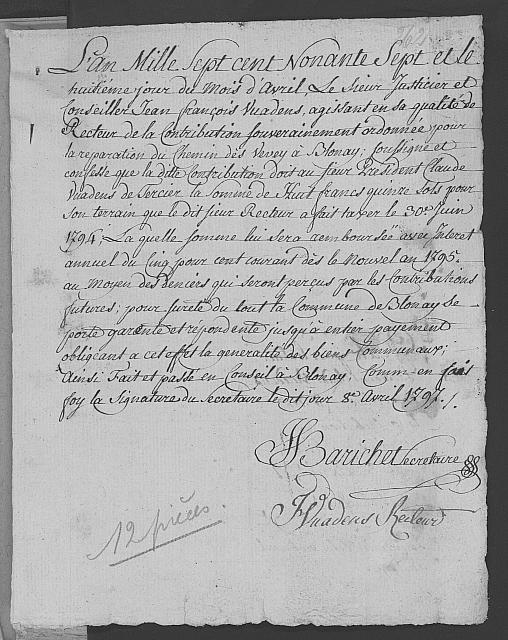 L'an Mille Sept cent Nonante Sept et le
huitieme jour du Mois d'Avril, Le Sieur Justicier et
Conseiller Jean françois Vuadens, agissant en sa qualité de
Recteur de la Contribution souverainement ordonnée pour
la reparation du Chemin dès Vevey à Blonay; soussigné et
confesse que la ditte Contribution doit au sieur President Claude
Vuadens de Tercier la somme de Huit francs quinze sols pour
son terrain que le dit sieur Recteur a fait taxer le 30e Juin
1794; La quelle somme lui sera remboursée avec Interet
annuel du Cinq pour cent courant dès le Nouvel an 1795.
au Moyen des deniers qui seront perçus par les Contributions
futures; pour sureté du tout la Commune de Blonay se
porte garente et repondente jusqu'a entier payement
obligeant a cet effet la generalité des biens Communaux;
Ainsi Fait et passé en Conseil à Blonay, Comm en fais
foy la Signature du Secretaire le dit jour 8e Avril 1797./.
Barichet Secretaire
Vuadens Recteur
12 pièces.